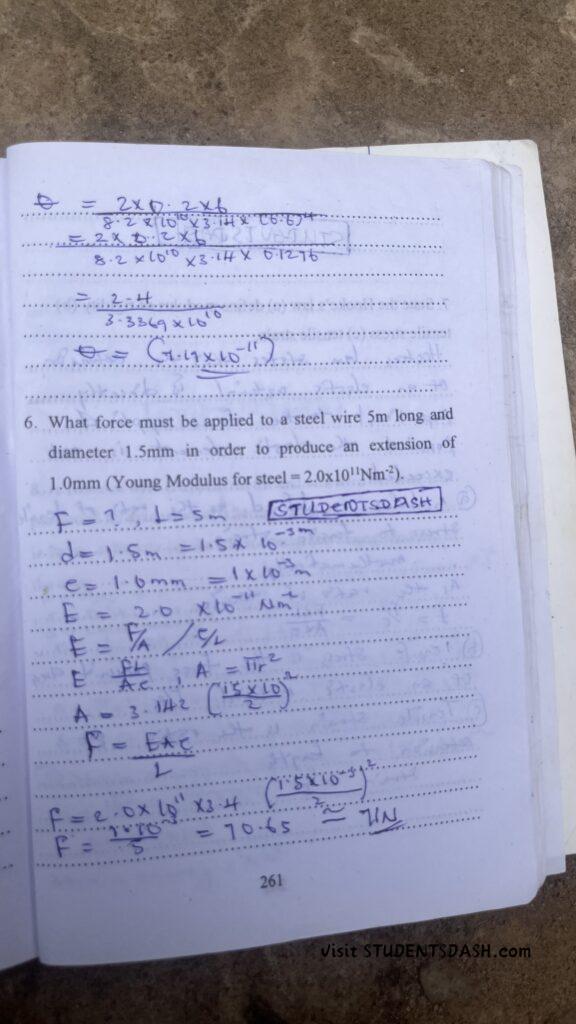 θ = 2×0.2×6
8.2×10¹⁰×3.14×(6.6)⁴
= 2×0.2×6
8.2×10¹⁰×3.14×0.1296
= 2.4
3.3369×10¹⁰
θ = (7.19×10⁻¹¹)
6. What force must be applied to a steel wire 5m long and
diameter 1.5mm in order to produce an extension of
1.0mm (Young Modulus for steel = 2.0x10¹¹Nm⁻²).
F = ?, L = 5m
STUDENTSDASH
d = 1.5m = 1.5×10⁻³m
e = 1.0mm = 1×10⁻³m
E = 2.0 ×10⁻¹¹ Nm⁻²
E = F/A / e/L
E FL/Ae, A = πr²
A = 3.142 (1.5×10/2)²
F = EAe
L
F = 2.0×10¹¹ ×3.4 (1.5×10⁻³/2)²
F = 1×10⁻³/5 = 70.65 ≅ 71N
261
Visit STUDENTSDASH.com